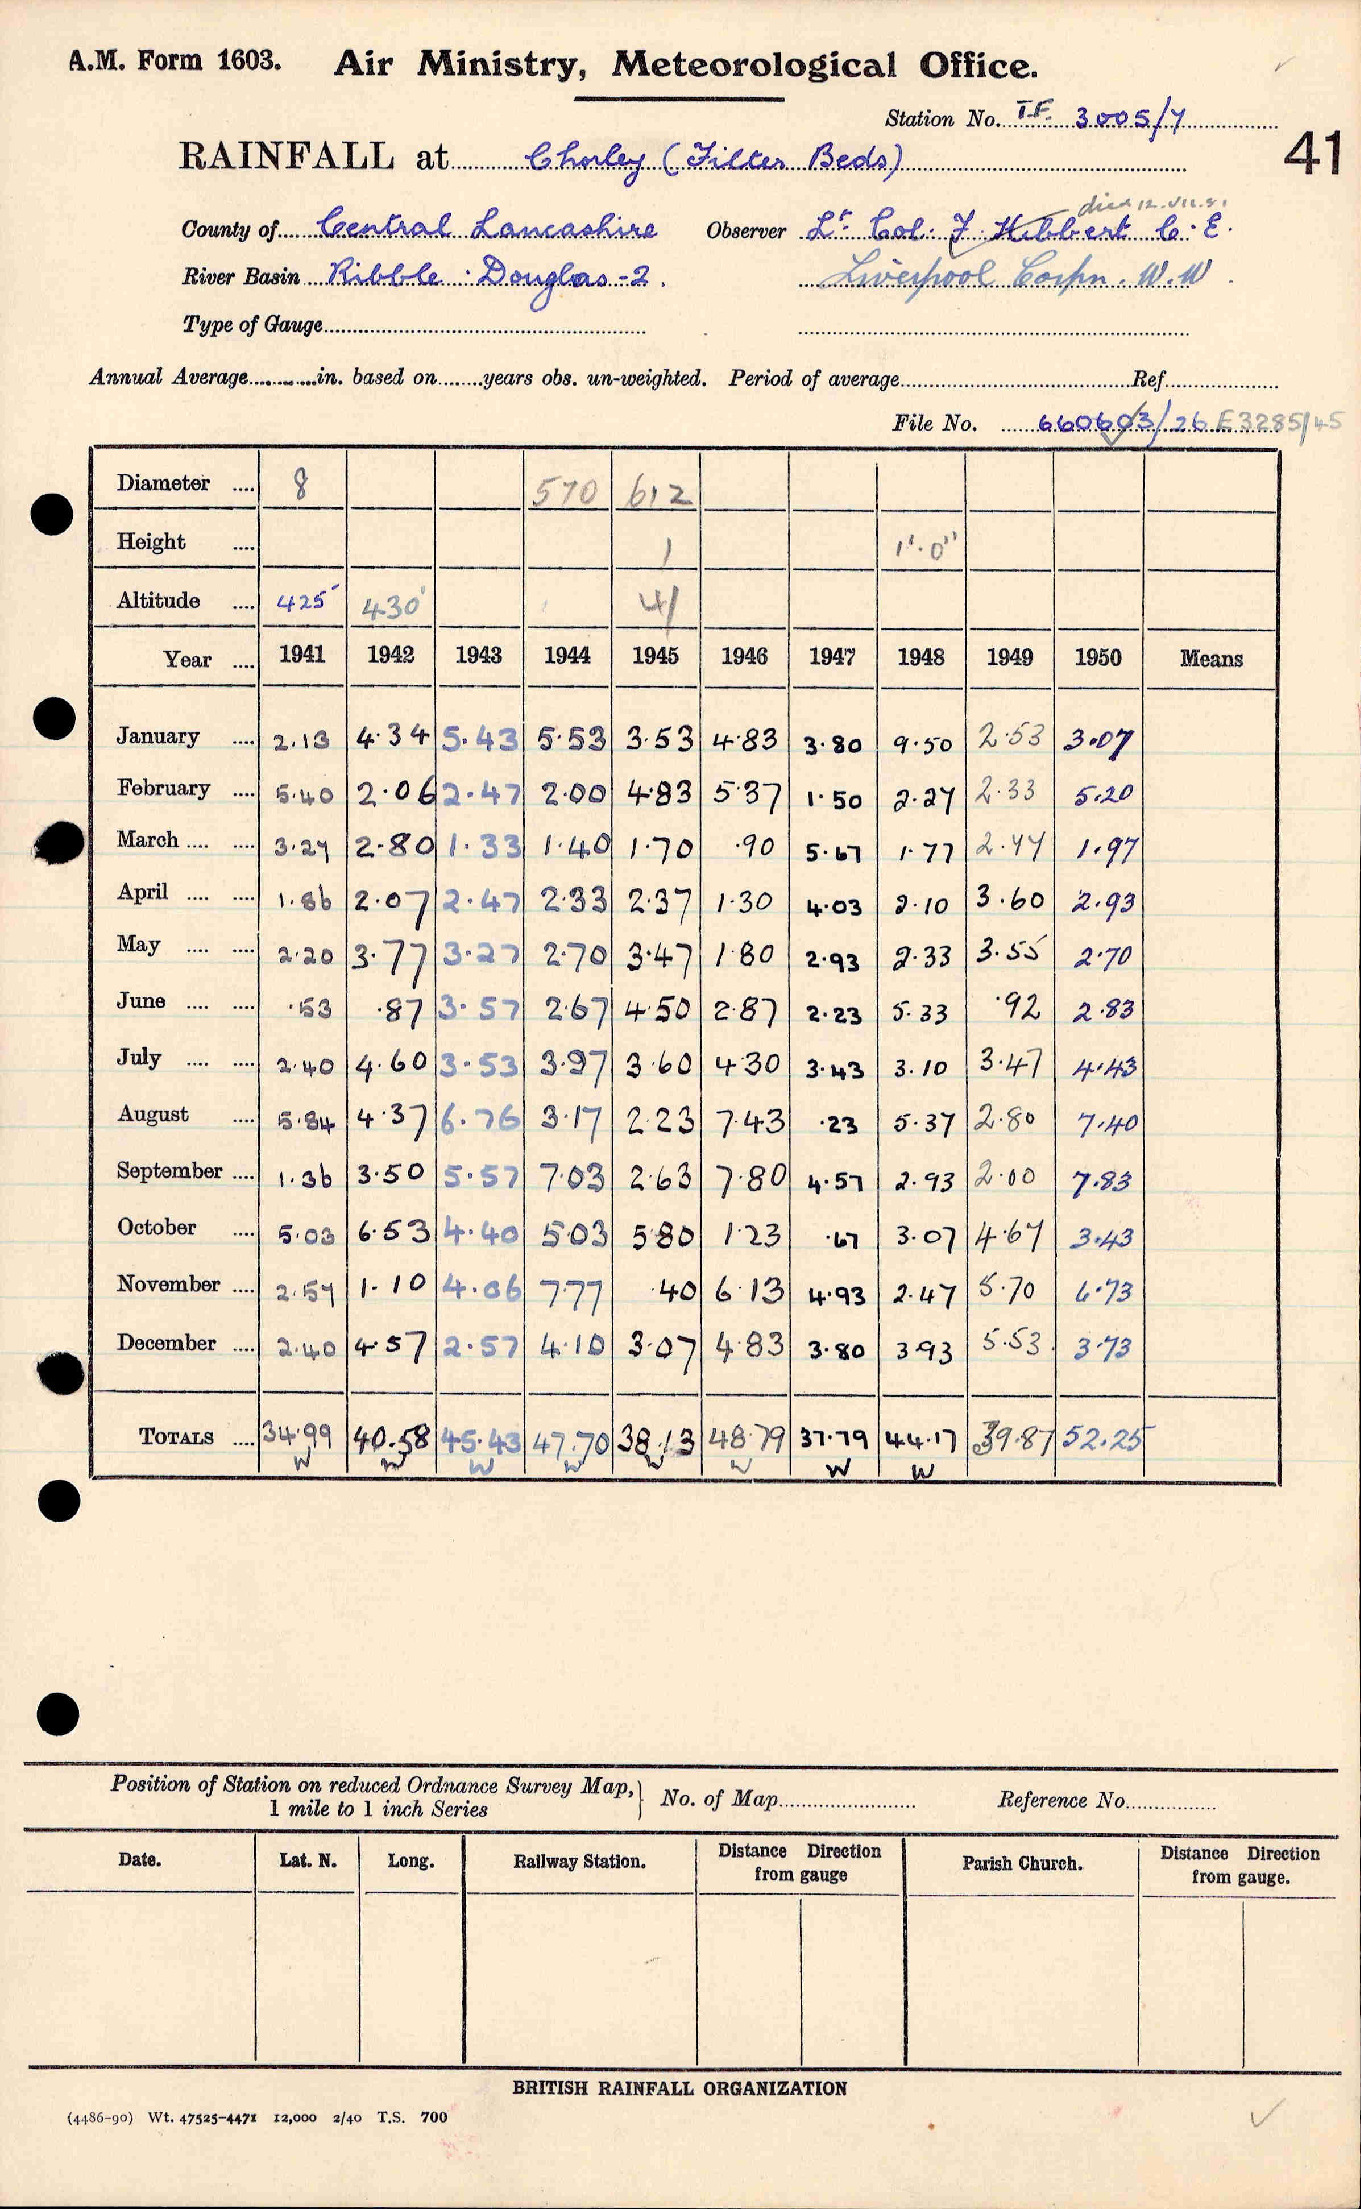 A.M. Form 1603. Air Ministry, Meteorological Office.
Station No. T.F. 3005/7
41
RAINFALL at Chorley (Filter Beds)
died 12.VII.
County of Central Lancashire Observer Lt. Col. F. Hibbert C.E.
River Basin Ribble : Douglas-2. Liverpool Corpn. W.W.
Type of Gauge
Annual Average in. based on years obs. un-weighted. Period of average Ref.
File No. 660603/26 E3285/45
Diameter .... 8 570 612
Height .... 1 1'.0"
Altitude .... 425' 430' 41
Year .... 1941 1942 1943 1944 1945 1946 1947 1948 1949 1950 Means
January .... 2.13 4.34 5.43 5.53 3.53 4.83 3.80 9.50 2.53 3.07
February .... 5.40 2.06 2.47 2.00 4.83 5.37 1.50 2.27 2.33 5.20
March .... .... 3.27 2.80 1.33 1.40 1.70 .90 5.67 1.77 2.77 1.97
April .... .... 1.86 2.07 2.47 2.33 2.37 1.30 4.03 2.10 3.60 2.93
May .... .... 2.20 3.77 3.27 2.70 3.47 1.80 2.93 2.33 3.55 2.70
June .... .... .53 .87 3.57 2.67 4.50 2.87 2.23 5.33 .92 2.83
July .... .... 2.40 4.60 3.53 3.97 3.60 4.30 3.43 3.10 3.47 4.43
August .... 5.84 4.37 6.76 3.17 2.23 7.43 .23 5.37 2.80 7.40
September .... 1.36 3.50 5.57 7.03 2.63 7.80 4.57 2.93 2.00 7.83
October .... 5.03 6.53 4.40 5.03 5.80 1.23 .67 3.07 4.67 3.43
November .... 2.57 1.10 4.06 7.77 .40 6.13 4.93 2.47 5.70 6.73
December .... 2.40 4.57 2.57 4.10 3.07 4.83 3.80 3.93 5.53 3.73
TOTALS .... 34.99 40.58 45.43 47.70 38.13 48.79 37.79 44.17 39.87 52.25
W W W W W W W W
Position of Station on reduced Ordnance Survey Map, No. of Map Reference No.
1 mile to 1 inch Series
Date. Lat. N. Long. Railway Station. Distance Direction from gauge Parish Church. Distance Direction from gauge.
BRITISH RAINFALL ORGANIZATION
(4486-90) Wt. 47525-4471 12,000 2/40 T.S. 700